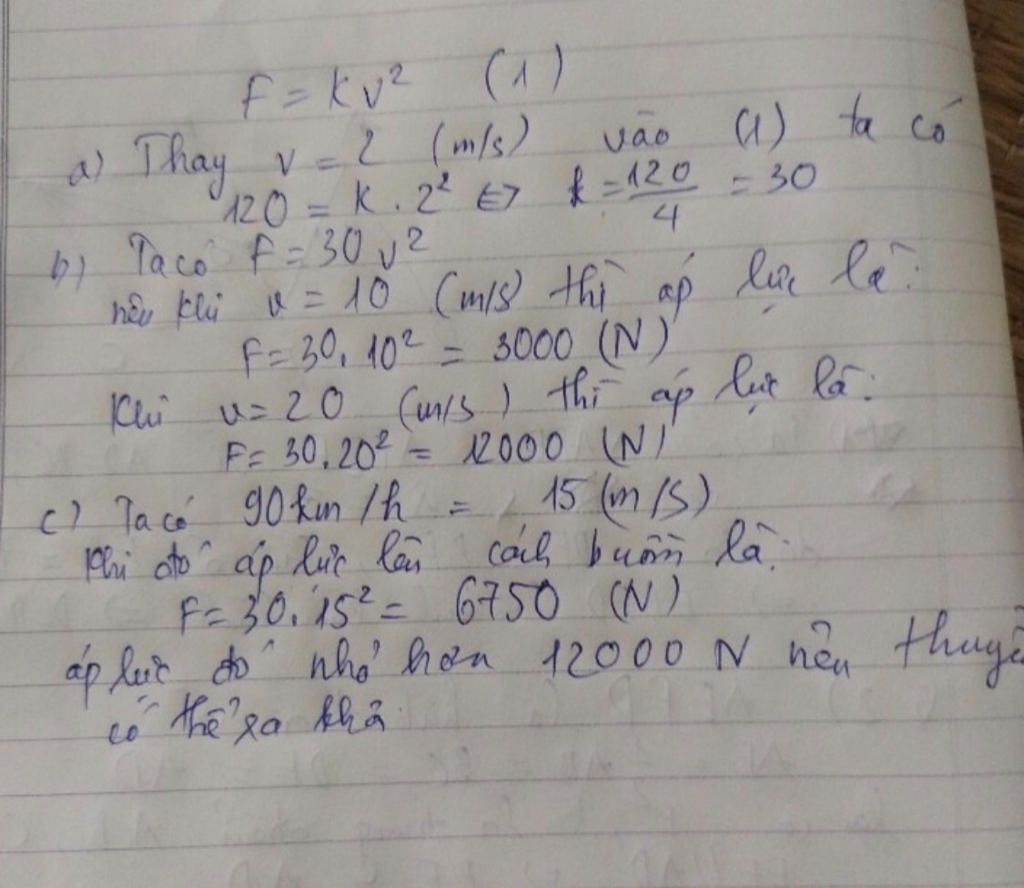 F = kv² (1)
a) Thay v = 2 (m/s) vào (1) ta có
120 = k . 2² ⇔ k = 120/4 = 30
b) Ta có F = 30v²
nên khi v = 10 (m/s) thì áp lực là:
F = 30. 10² = 3000 (N)
Khi v = 20 (m/s) thì áp lực là:
F = 30.20² = 12000 (N)
c) Ta có 90km/h = 15 (m/s)
Khi đó áp lực lên cánh buồm là:
F = 30. 15² = 6750 (N)
áp lực đó nhỏ hơn 12000 N nên thuyề
có thể ra khơ